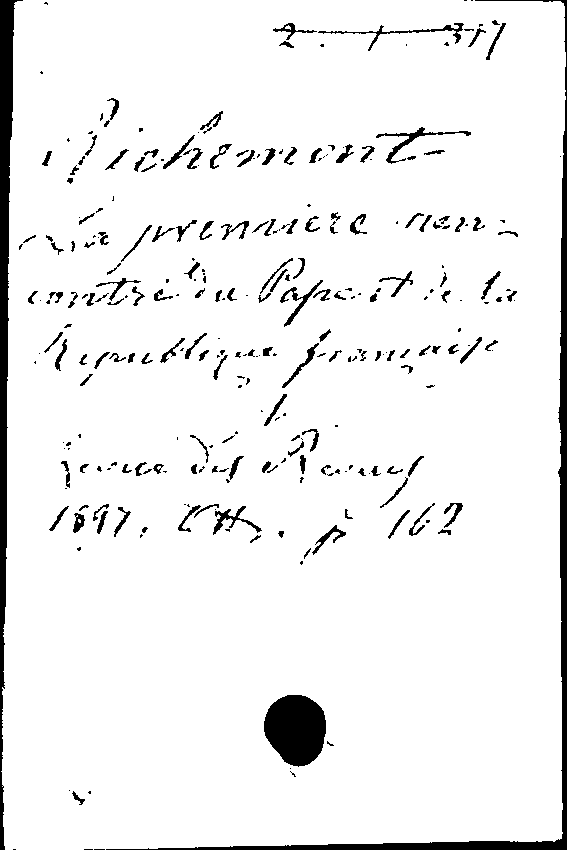 2. 1. 317
Richemont
La premiere ren-
contre du Pape et de la
République française
Revue des Revues
1897. p 162